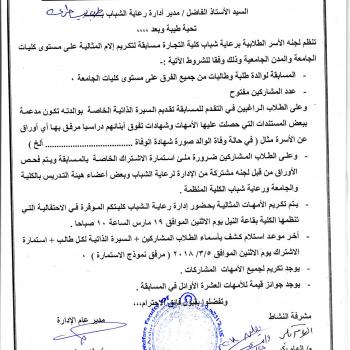 السيد الأستاذ الفاضل / مدير أدارة رعاية الشباب
تحية طيبة وبعد ,,,,
تنظم لجنه الأسر الطلابية برعاية شباب كلية التجارة مسابقة لتكريم إلام المثالية على مستوى كليات
الجامعة والمدن الجامعية وذلك وفقا للشروط الآتية :-
- المسابقة لوالدة طلبة وطالبات من جميع الفرق على مستوى كليات الجامعة .
- عدد المشاركين مفتوح
- وعلى الطلاب الراغبين في التقدم للمسابقة تقديم السيرة الذاتية الخاصة بوالدته تكون مدعمة
ببعض المستندات التي حصلت عليها الأمهات وشهادات تفوق أبنائهم دراسيا مرفق بها أي أوراق
عن الأسرة مثال ( في حالة وفاة الوالد صورة شهادة الوفاة ................ الخ )
- وعلى الطلاب المشاركين ضرورة ملئ استمارة الاشتراك الخاصة بالمسابقة ويتم فحص
الأوراق من قبل لجنه مشتركة من الإدارة لرعاية الشباب وبعض أعضاء هيئة التدريس بالكلية
والجامعة ورعاية شباب الكلية المنظمة .
- يتم تكريم الأمهات المثالية بحضور إدارة رعاية الشباب كليتكم الموقرة في الاحتفالية التي
تنظمها الكلية بقاعة النيل يوم الاثنين الموافق ١٩ مارس الساعة ١٠ صباحا .
- أخر موعد استلام كشف بأسماء الطلاب المشاركين + السيرة الذاتية لكل طالب + استمارة
الاشتراك يوم الاثنين الموافق ٢٠١٨/٣/٥ ( مرفق نموذج الاستمارة )
- يوجد تكريم لجميع الأمهات المشاركات
- يوجد جوائز قيمة للأمهات العشرة الأوائل في المسابقة .
وتفضلوا بقبول فائق الاحترام,,,
مشرفة النشاط
مدير عام الإدارة